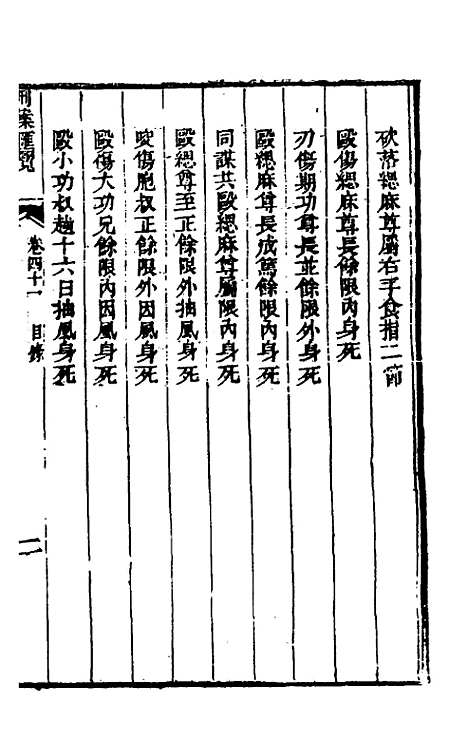 砍落緦麻尊屬右手食指二節
毆傷緦麻尊長餘限內身死
刃傷期功尊長並餘限外身死
毆緦麻尊長成篤餘限內身死
同謀共毆緦麻尊屬限內身死
毆緦尊至正餘限外抽風身死
咬傷胞叔正餘限外因風身死
毆傷大功兄餘限內因風身死
毆小功叔越十六日抽風身死
刑案匯覽
卷四十一 目錄
二